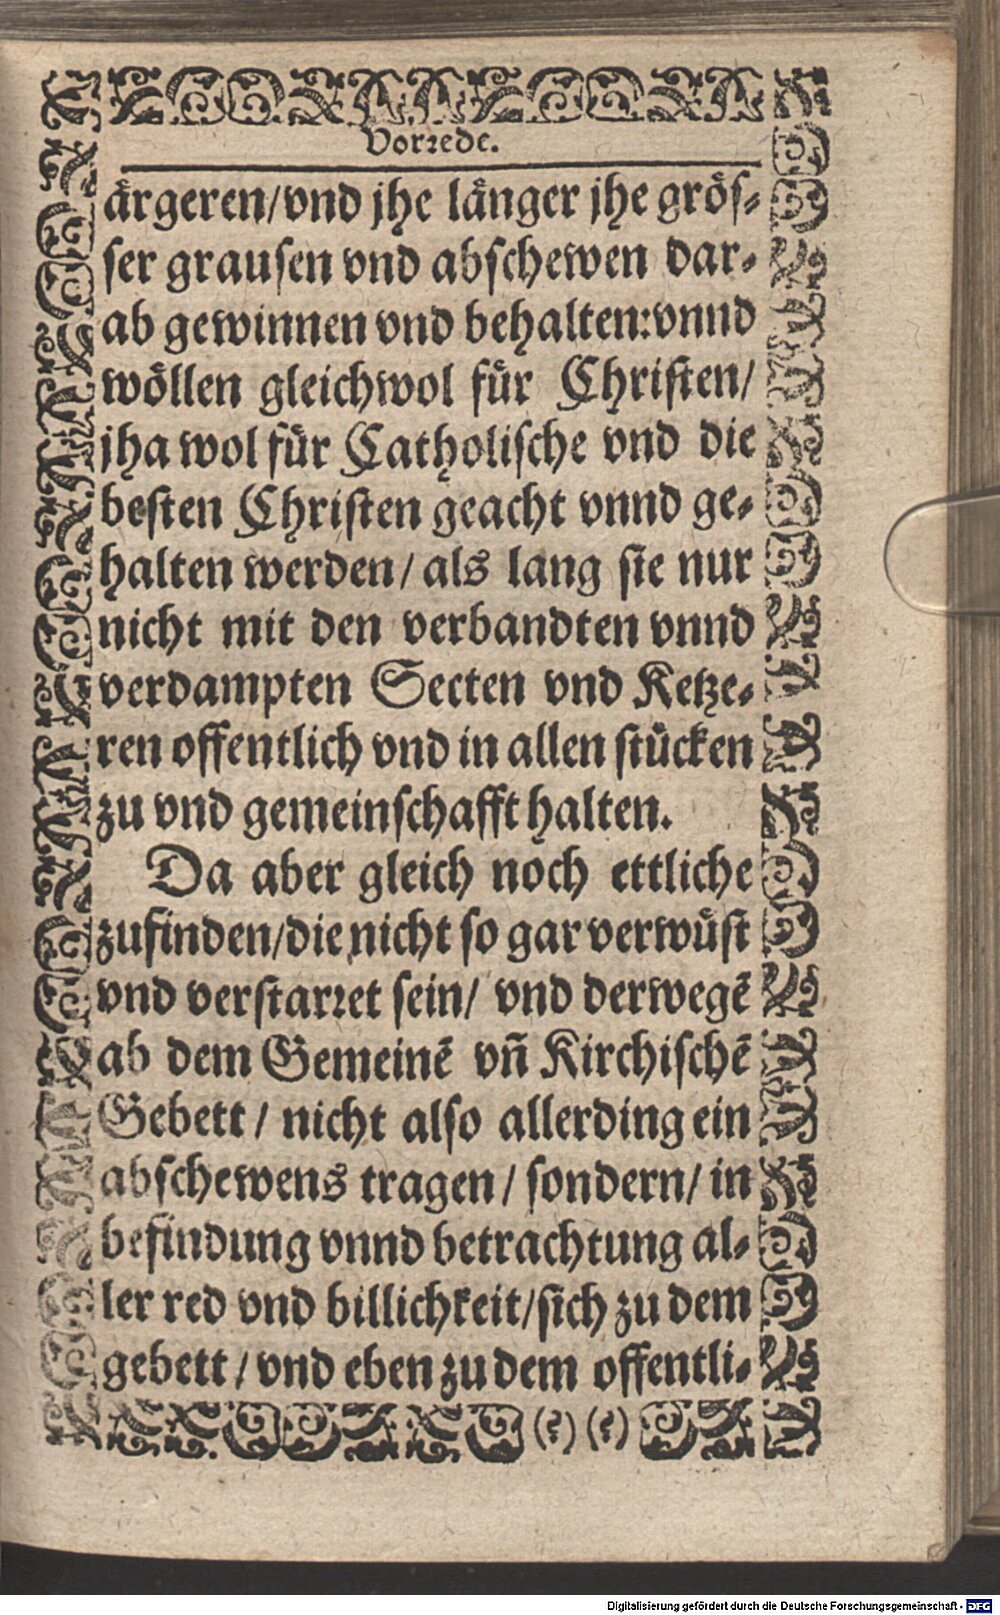 Vorꝛede.
aͤrgeren/vnd jhe laͤnger jhe groͤſ⸗
ſer grauſen vnd abſchewen dar⸗
ab gewinnen vnd behalten:vnnd
woͤllen gleichwol fuͤr Chriſten/
jha wol fuͤr Catholiſche vnd die
beſten Chriſten geacht vnnd ge⸗
halten werden/ als lang ſie nur
nicht mit den verbandten vnnd
verdampten Secten vnd Ketze⸗
ren offentlich vnd in allen ſtuͤcken
zu vnd gemeinſchafft halten.
Da aber gleich noch ettliche
zufinden/die nicht ſo gar verwuͤſt
vnd verſtarꝛet ſein/ vnd derwegẽ
ab dem Gemeinẽ vñ Kirchiſchẽ
Gebett/ nicht alſo allerding ein
abſchewens tragen/ ſondern/ in
befindung vnnd betrachtung al⸗
ler red vnd billichkeit/ſich zu dem
gebett/ vnd eben zu dem offentli⸗
Digitalisierung gefördert durch die Deutsche Forschungsgemeinschaft - DFG